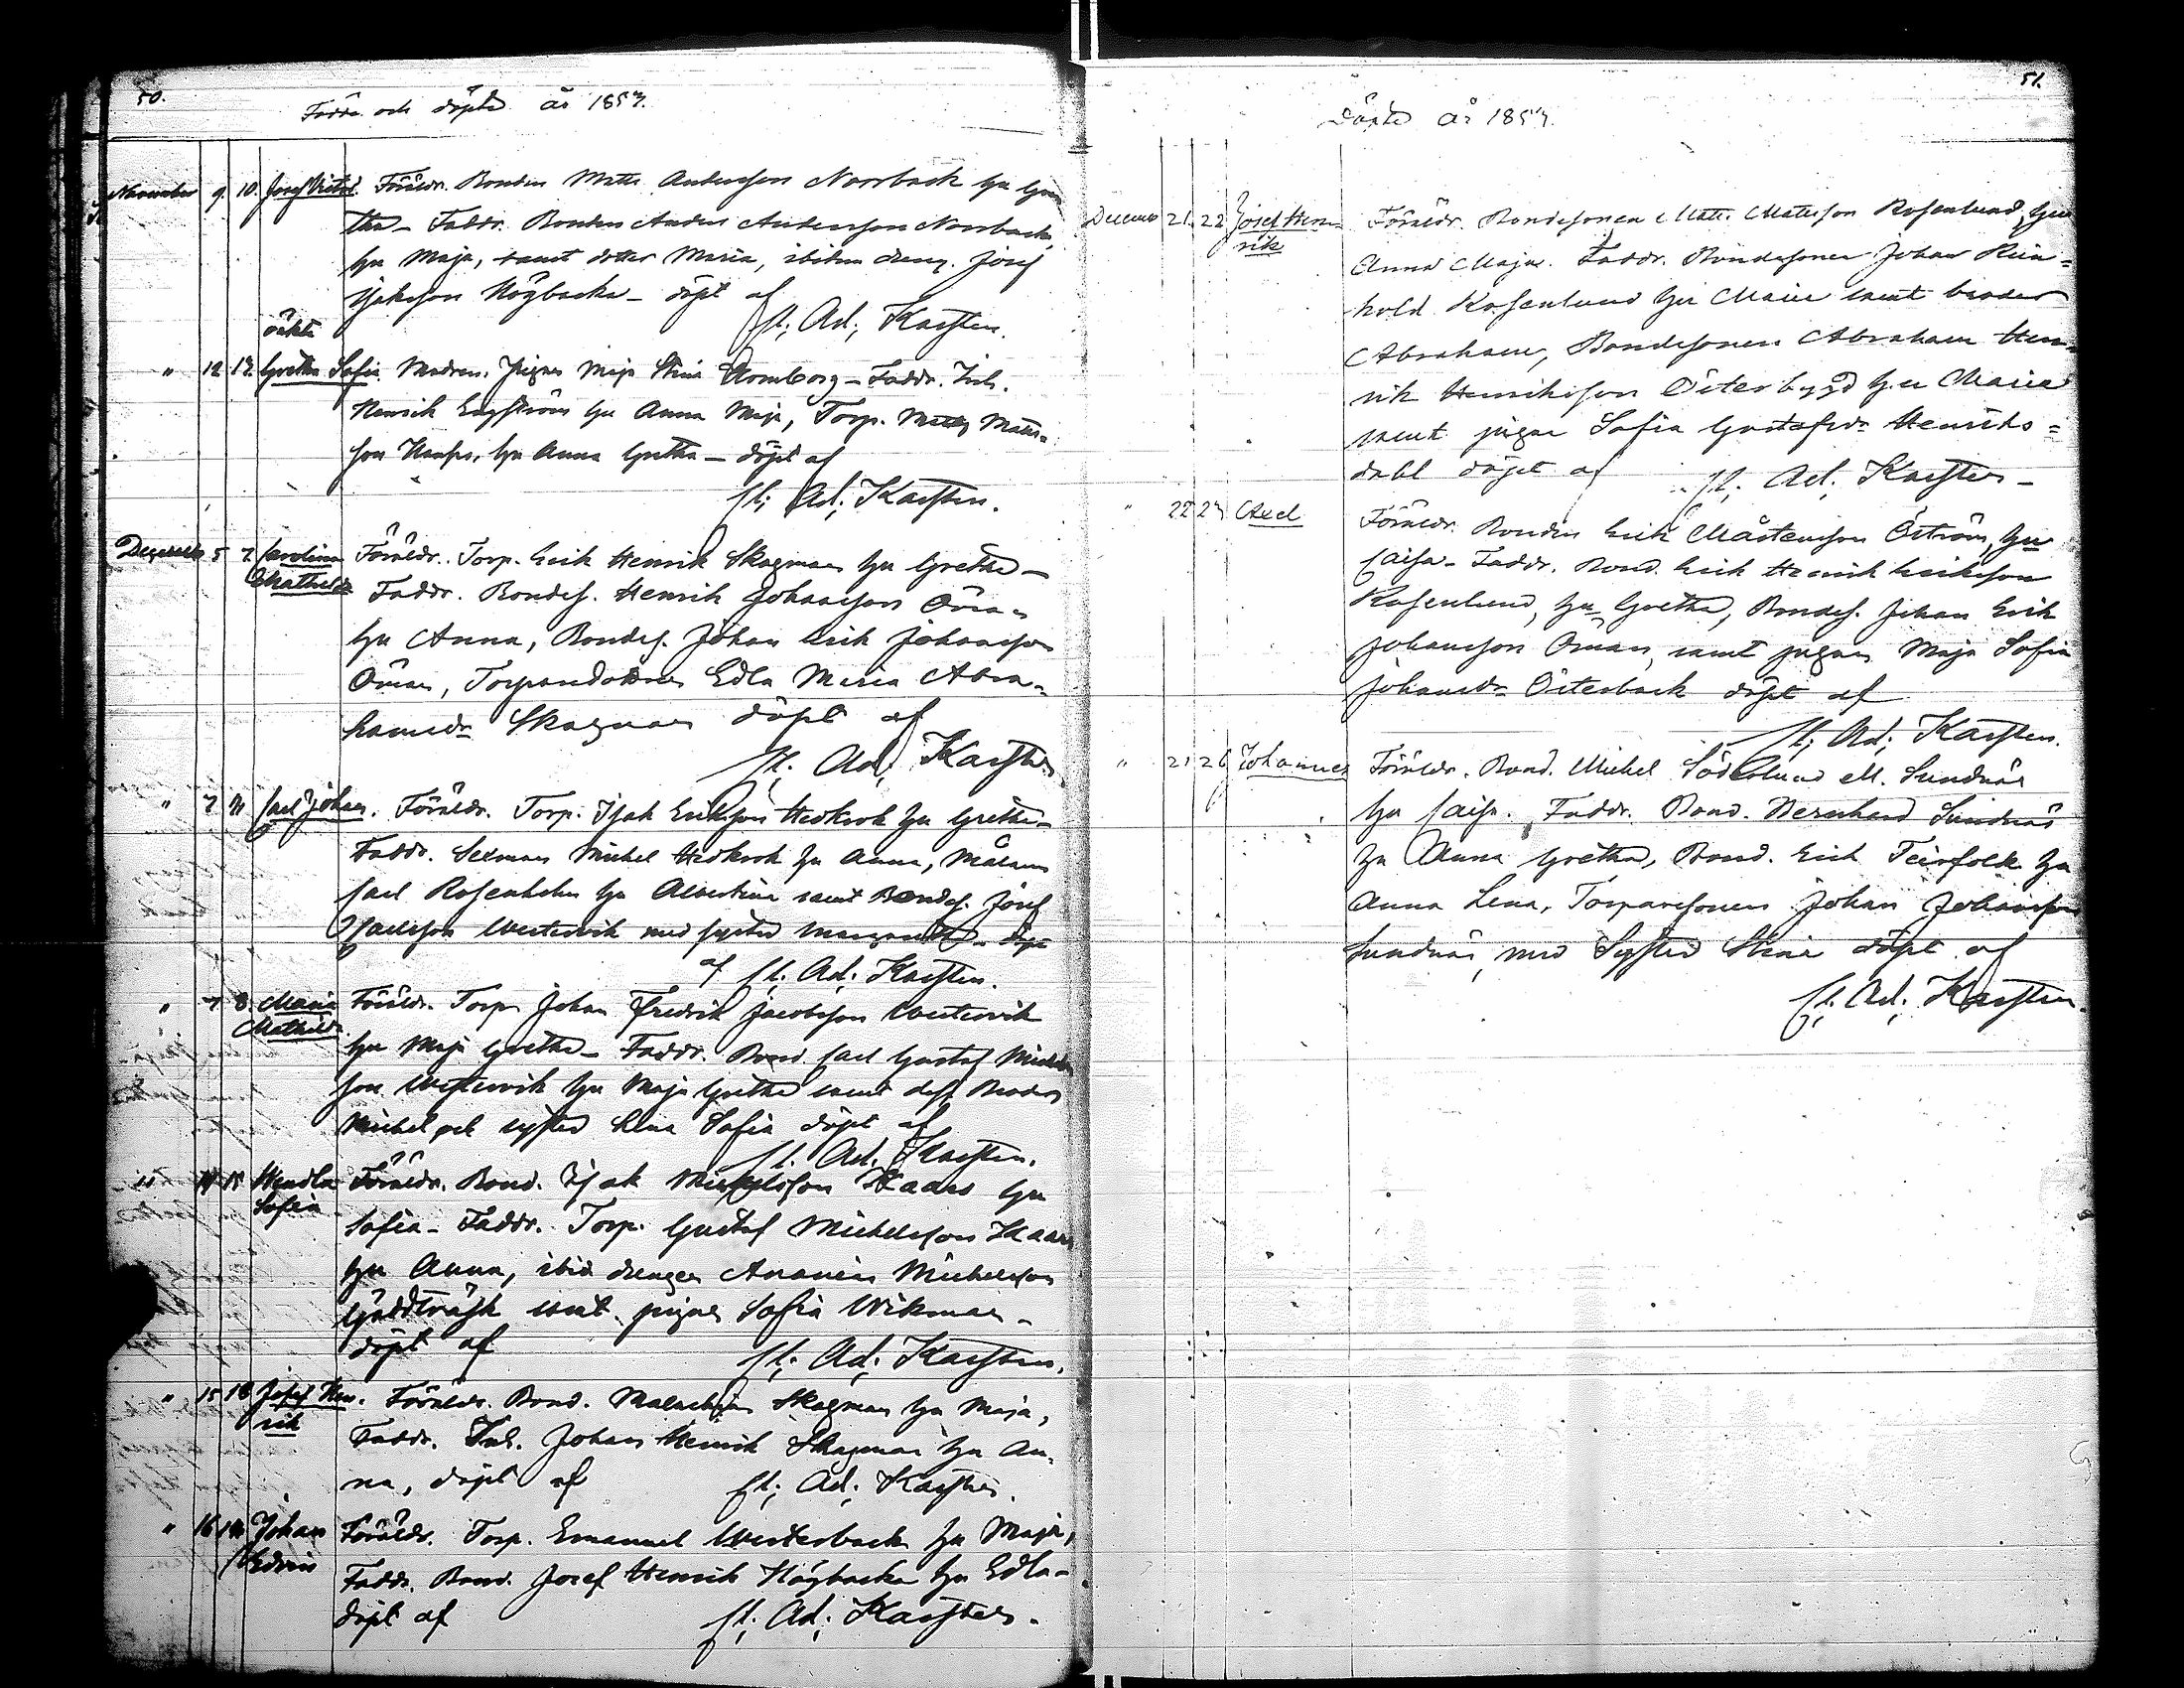 50.
Födde och döpte år 1857.
November 9. 10. Josef Victor. Föräldr. Bonden Matts Andersson Norrback hu Gre
tha – Faddr. Bonden Anders Andersson Norrback,
hu Maja, samt dotter Maria, ibidem dreng. Josef
Isaksson Högbacka – döpt af
Fl; Ad; Karsten.
oäkta
" 12 13. Gretha Sofia. Modren. Pigan Maja Stina – Faddr. Inh.
Henrik Engström hu Anna Maja, Torp. Matts Matts-
son hu Anna Gretha – döpt af
Fl; Ad; Karsten.
December 5 7. Carolina Föräldr. Torp. Erik Henrik Skagman hu Gretha –
Mathilda Faddr. Bondes. Henrik Johansson Öman
hu Anna, Bondes. Johan Erik Johansson
Öman, Torparedottren Edla Maria Abra-
hamsdr Skagman döpt af
Fl. Ad; Karsten
" 7 11 Carl Johan. Föräldr. Torp. Isak Eriksson Hedkrok hu Gretha –
Faddr. Sexman Michel Hedkrok hu Anna, Målaren
Carl Rosenholm hu Albertina samt Bondes. Josef
Carlsson Westervik med syster Margaretha – döpt
af Fl; Ad; Karsten.
" 7 8. Maria Föräldr. Torp. Johan Fredrik Jacobsson Westervik
Mathilda hu Maja Gretha – Faddr. Bond. Carl Gustaf Michels
son Westervik hu Maja Gretha samt dess Broder
Michel och syster Lena Sofia döpt af
Fl. Ad. Karsten.
" 14 15 Hendla Föräldr. Bond. Isak Michelsson Kaars hu
Sofia Sofia – Faddr. Torp. Gustaf Michelsson Kaars
hu Anna, ibid drengen Ananias Michelsson
Gäddträsk samt pigan Sofia Wikman –
döpt af Fl; Ad; Karsten.
" 15 18 Josef Hen- Föräldr. Bond. Malachias Skagman hu Maja,
rik Faddr. Inh. Johan Henrik Skagman hu An-
na, döpt af Fl; Ad; Karsten.
" 16 Johan Föräldr. Torp. Emanuel Westerback hu Maja,
Edvin Faddr. Bond. Josef Henrik Högbacka hu Edla –
döpt af Fl; Ad; Karsten.
51.
Döpte år 1857.
December 21. 22 Josef Hen- Föräldr. Bondesonen Matts Mattsson Rosenlund, hu
rik Anna Maja. Faddr. Bondesonen Johan Rein-
hold Rosenlund hu Maria samt broder
Abraham, Bondesonen Abraham Hen-
rik Henriksson Österbygd hu Maria
samt pigan Sofia Gustafsdr Henriks-
dahl döpt af Fl. Ad. Karsten –
" 22 27 Axel Föräldr. Bonden Erik Mårtensson Öström, hu
Caisa – Faddr. Bond. Erik Henrik Eriksson
Rosenlund, hu Gretha, Bondes. Johan Erik
Johansson Öman, samt pigan Maja Sofia
Johansdr Österback döpt af
Fl; Ad; Karsten.
" 21 26 Johannes Föräldr. Bond. Michel Söderlund ell. Sundnäs
hu Caisa. Faddr. Bond. Bernhard Sundnäs
hu Anna Gretha, Bond. Erik Teirfolk hu
Anna Lena, Torparesonen Johan Johansson
Sundnäs, med Syster Stina döpt af
Fl. Ad. Karsten.